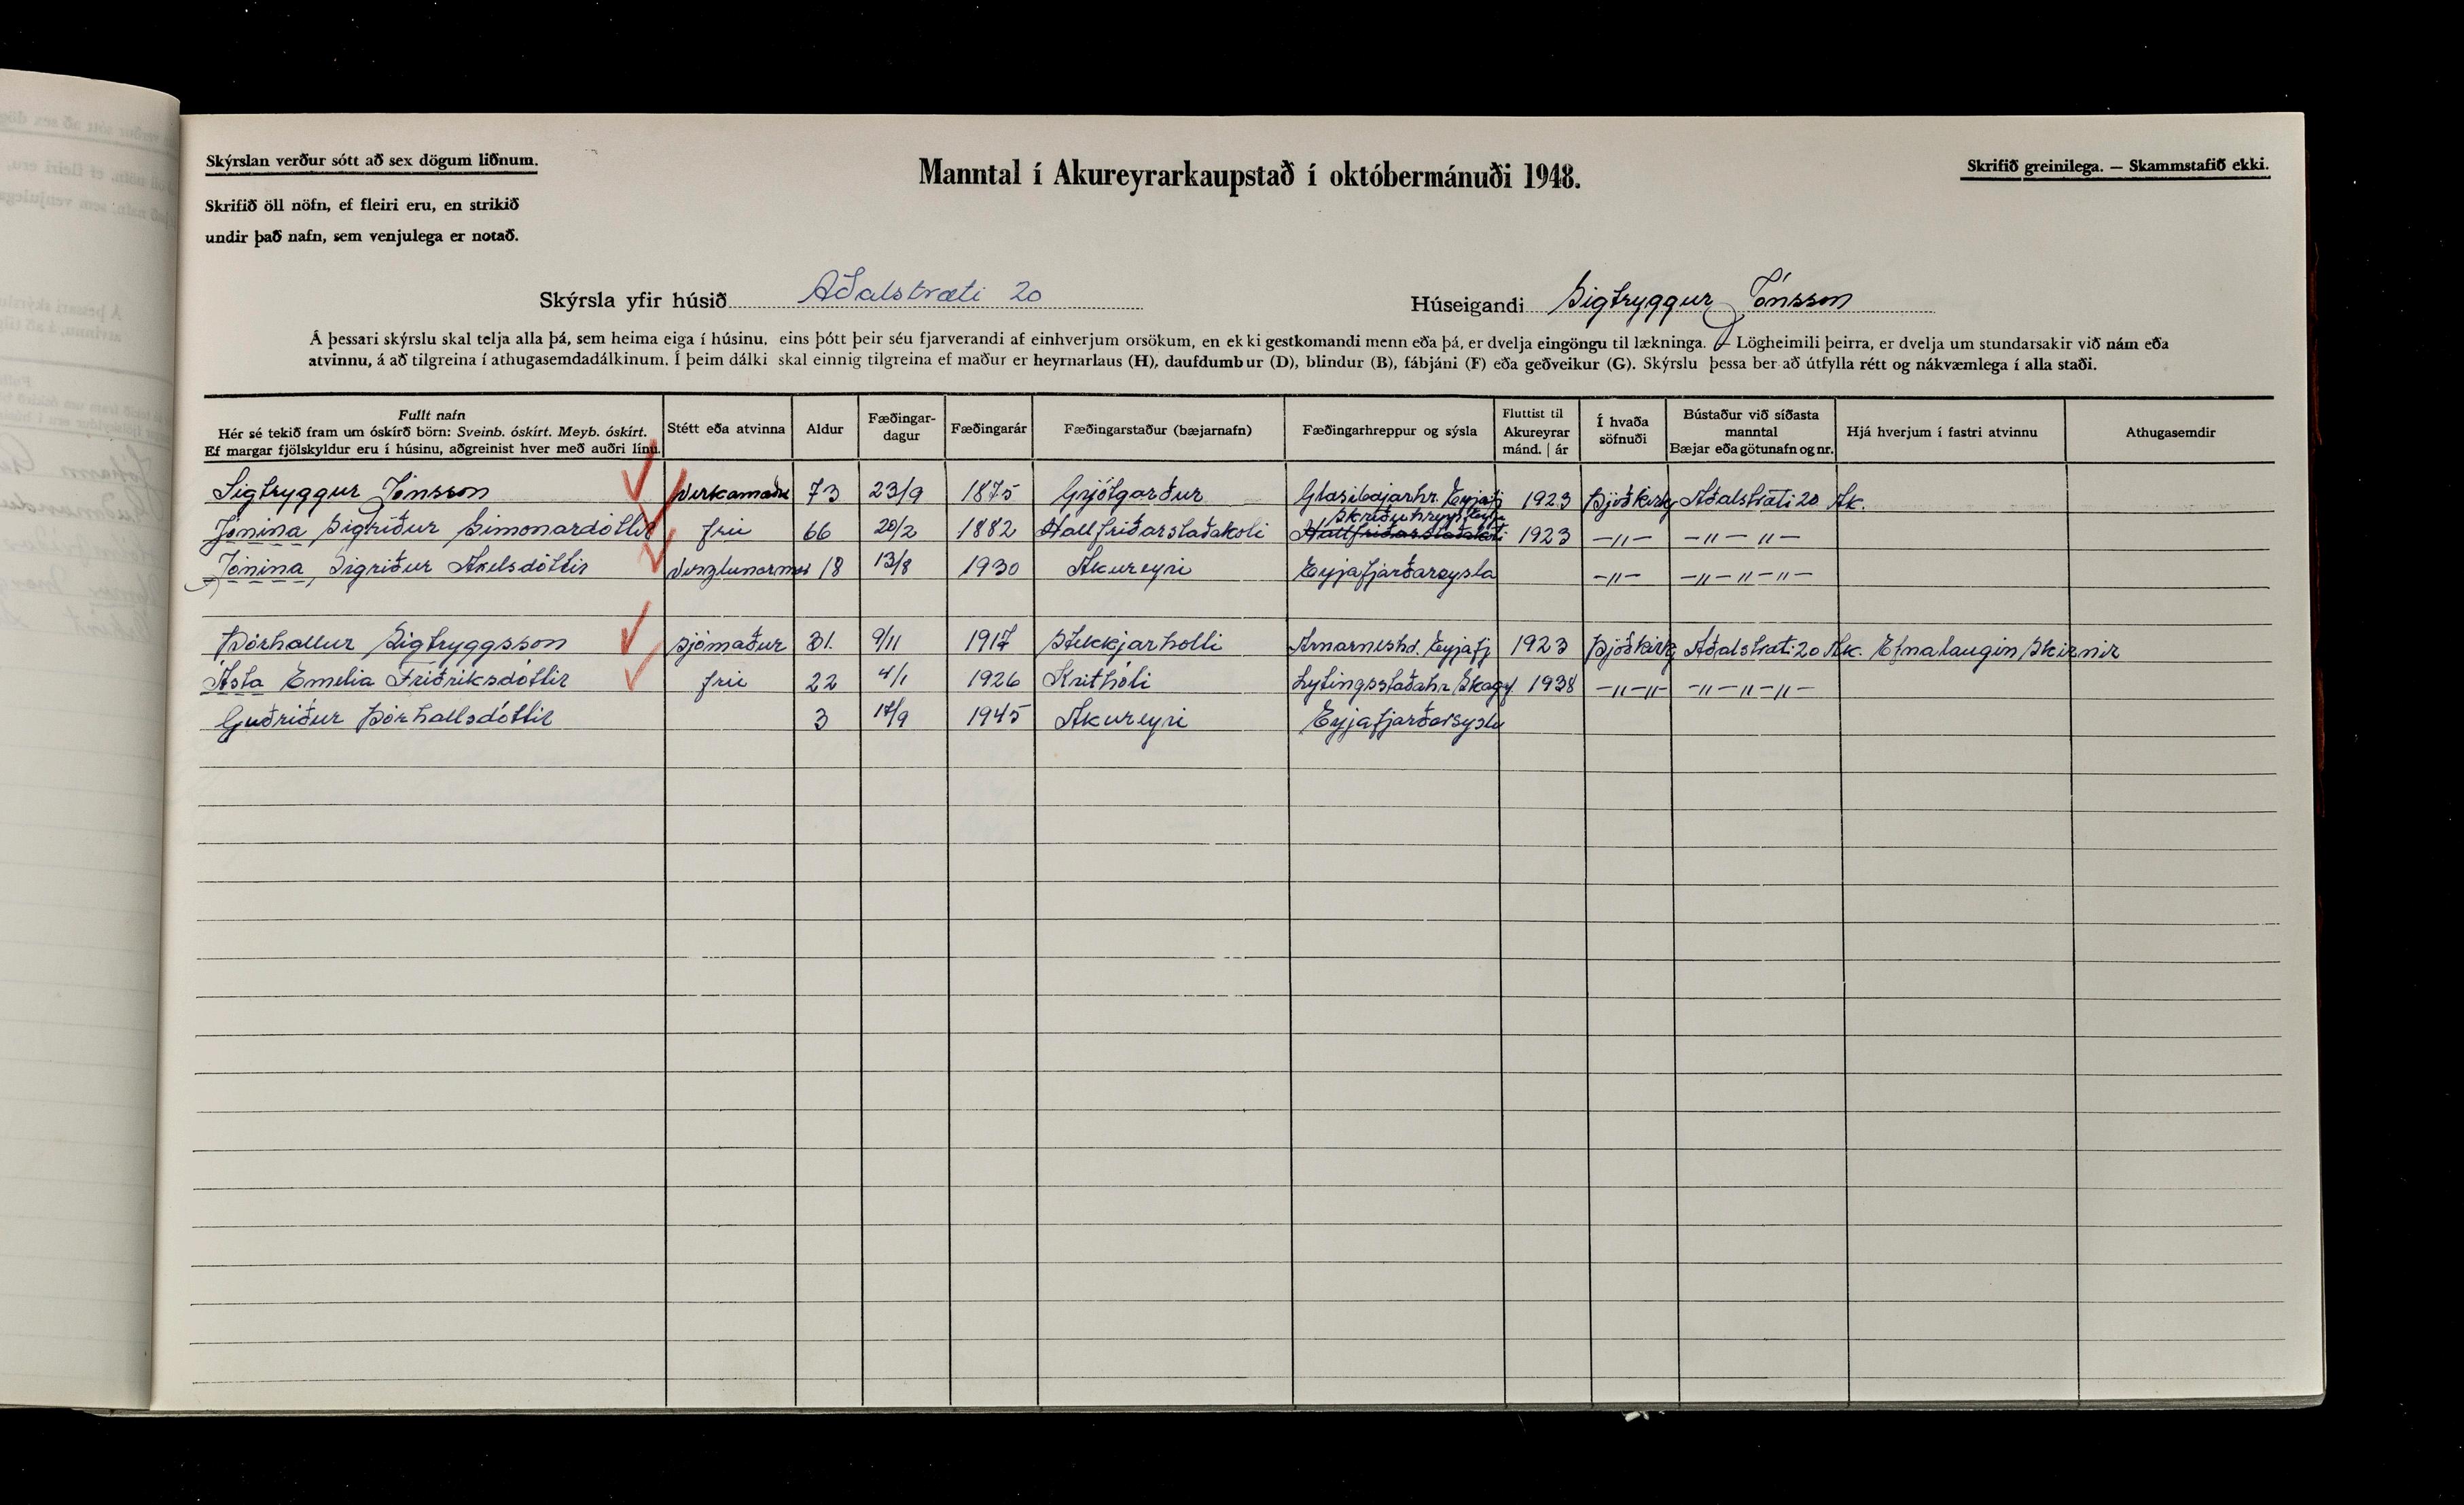 Skýrslan verður sótt að sex dögum liðnum.
Manntal í Akureyrarkaupstað í októbermánuði 1948.
Skrifið greinilega. — Skammstafið ekki.
Skrifið öll nöfn, ef fleiri eru, en strikið
undir það nafn, sem venjulega er notað.
Skýrsla yfir húsið Aðalstræti 20 Húseigandi Sigtryggur Jónsson
Á þessari skýrslu skal telja alla þá, sem heima eiga í húsinu, eins þótt þeir séu fjarverandi af einhverjum orsökum, en ekki gestkomandi menn eða þá, er dvelja eingöngu til lækninga. — Lögheimili þeirra, er dvelja um stundarsakir við nám eða
atvinnu, á að tilgreina í athugasemdadálkinum. Í þeim dálki skal einnig tilgreina ef maður er heyrnarlaus (H), daufdumbur (D), blindur (B), fábjáni (F) eða geðveikur (G). Skýrslu þessa ber að útfylla rétt og nákvæmlega í alla staði.
Fullt nafn
Hér sé tekið fram um óskírð börn: Sveinb. óskírt. Meyb. óskírt.
Ef margar fjölskyldur eru í húsinu, aðgreinist hver með auðri línu.
Stétt eða atvinna
Aldur
Fæðingar-
dagur
Fæðingarár
Fæðingarstaður (bæjarnafn)
Fæðingarhreppur og sýsla
Fluttist til
Akureyrar
mánd. | ár
Í hvaða
söfnuði
Bústaður við síðasta
manntal
Bæjar eða götunafn og nr.
Hjá hverjum í fastri atvinnu
Athugasemdir
Sigtryggur Jónsson Verkamaður 73 23/9 1875 Grjótgarður Glæsibæjarhr. Eyjafj 1923 Þjóðkirkj Aðalstræti 20 Ak.
Jónína Sigríður Símonardóttir frú 66 20/2 1882 Hallfríðarstaðakoti Skriðuhrepp Eyjafj 1923 —〃— —〃— 〃—
Jónína Sigríður Axelsdóttir Verzlunarmær 18 13/8 1930 Akureyri Eyjafjarðarsýsla —〃— —〃—〃—〃—
Þórhallur Sigtryggsson sjómaður 31. 9/11 1917 Stekkjarholti Arnarneshr. Eyjafj 1923 Þjóðkirkj Aðalstræti 20 Ak. Efnalaugin Skírnir
Ásta Emelia Friðriksdóttir frú 22 4/1 1926 Krithóli Lýtingsstaðahr. Skagf 1938 —〃—〃— —〃—〃—〃—
Guðríður Þórhallsdóttir 3 17/9 1945 Akureyri Eyjafjarðarsýsla